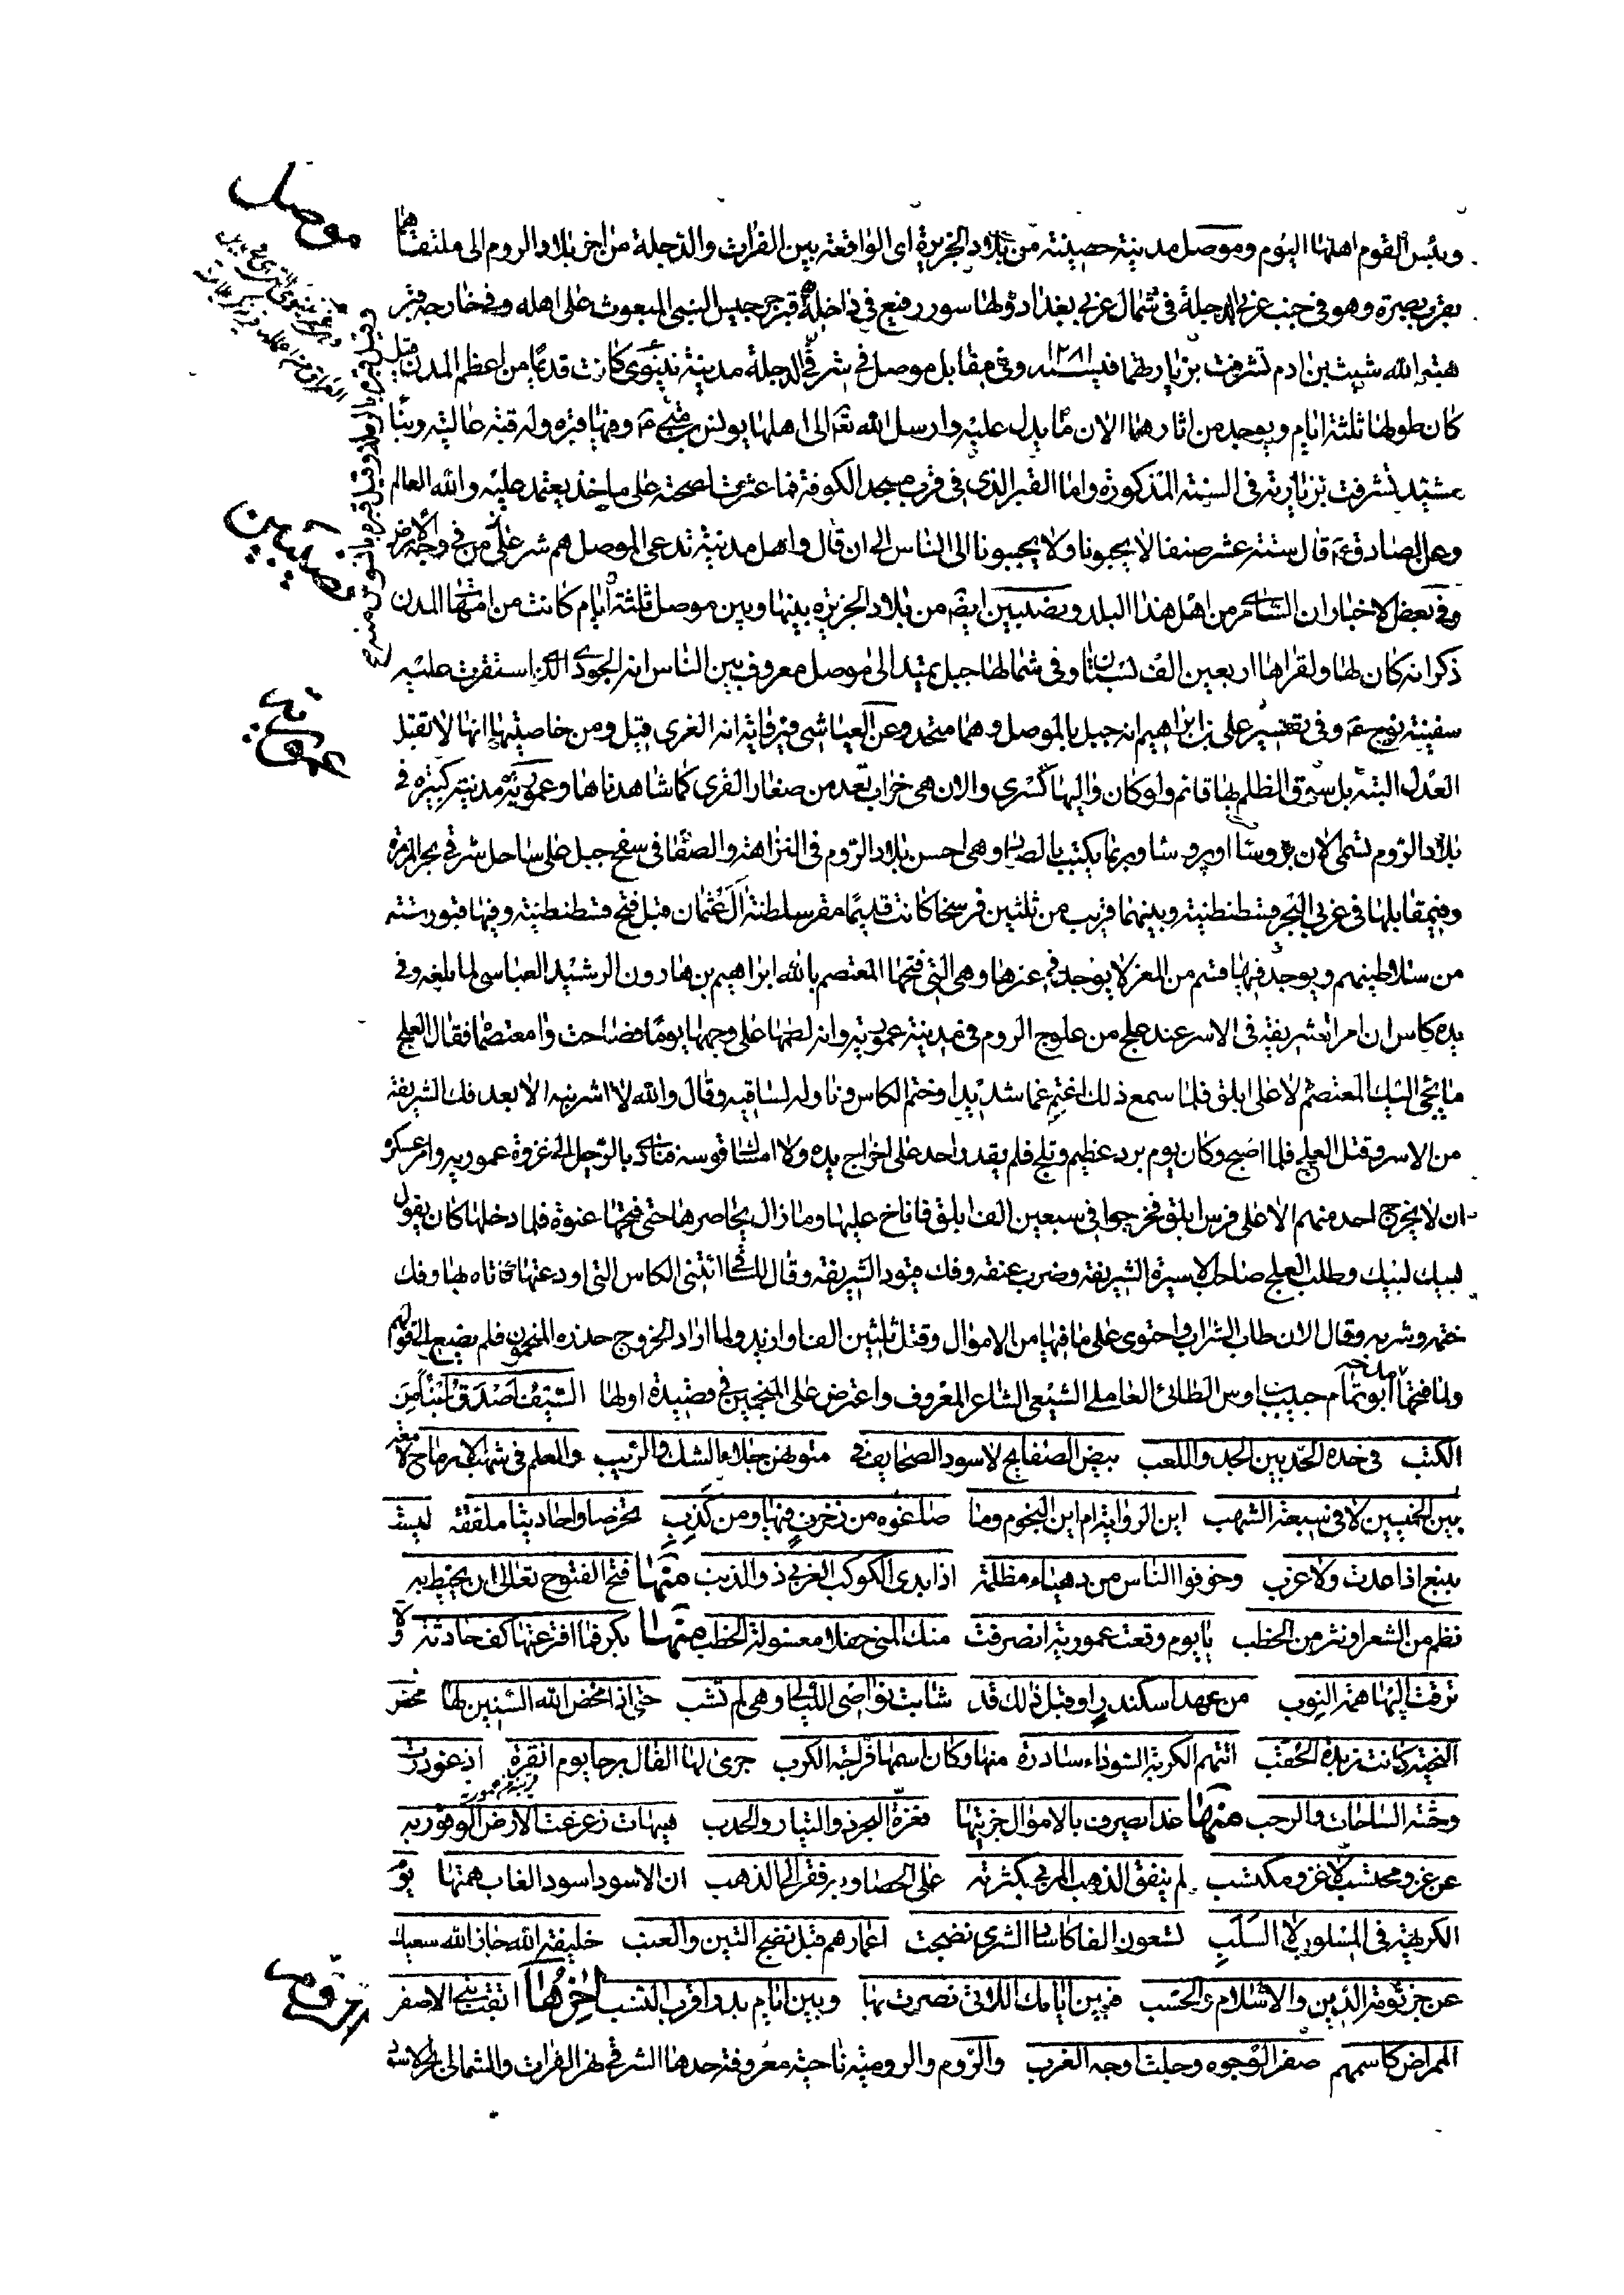 وبئس القوم اهلها اليوم وموصل مدينة حصينة من بلاد الجزيرة اى الواقعة بين الفرات والدجلة من اخر بلاد الروم الى ملتقاهما
بقرب بصرة وهو فى جنب غربى الدجلة فى شمال غربى بغداد ولها سور رفيع فى داخله قبر جرجيس النبى المبعوث على اهله وفى خارجه قبر
هبة الله شيث بن ادم تشرفت بزيارتهما فى سنة ١٢٨١ وفى مقابل موصل فى شرقى الدجلة مدينة نينوى كانت قديما من اعظم المدن قيل
كان طولها ثلثة ايام ويوجد من اثارهما الان ما يدل عليه وارسل الله تعا الى اهلها يونس بن متى ع وفيها قبره وله قبة عالية وبناء
مشيد تشرفت بزيارته فى السنة المذكورة واما القبر الذى فى قرب مسجد الكوفة فما عثرنا صحته على ماخذ يعتمد عليه والله العالم
وعن الصادق ع قال ستة عشر صنفا لا يحبونا ولا يحببونا الى الناس الى ان قال واهل مدينة تدعى الموصل هم شر على من فى وجه الارض
وفى بعض الاخبار ان الشامر من اهل هذا البلد ونصيبين ايضا من بلاد الجزيرة بينها وبين موصل ثلثة ايام كانت من امهات المدن
ذكر انه كان لها ولقراها اربعين الف بستان وفى شمالها جبل يمتد الى موصل معروف بين الناس انه الجودى الذى استقرت عليه
سفينة نوح ع وفى تفسير على بن ابراهيم انه جبل بالموصل وهما متحد وعن العياشى فى رواية انه الغرى قيل ومن خاصيتها انها لا تقبل
العدل البتة بل سوق الظلم بها قائم ولو كان واليها كسرى والان هى خراب تعد من صغار القرى كما شاهدناها وعمورية مدينة كبيرة فى
بلاد الروم تسمى الان بروسا او بروسا وربما يكتب بالصاد وهى احسن بلاد الروم فى النزاهة والصفا فى سفح جبل على ساحل شرقى بحر المرمرة
وفى مقابلها فى غربى البحر قسطنطنية وبينهما قريب من ثلثين فرسخا كانت قديما مقر سلطنة آل عثمان قبل فتح قسطنطنية وفيها قبور ستة
من سلاطينهم ويوجد فيها قسم من المعز لا يوجد فى غيرها وهى التى فتحها المعتصم بالله ابراهيم بن هارون الرشيد العباسى لما بلغه وفى
يده كاس ان امراة شريفة فى الاسر عند علج من علوج الروم فى مدينة عمورية وانه لطمها على وجهها يوما فصاحت وامعتصما فقال العلج
ما يجئ اليك المعتصم الا على ابلق فلما سمع ذلك اغتم غما شديدا وختم الكاس وناوله لساقيه وقال والله لا اشربه الا بعد فك الشريفة
من الاسر وقتل العلج فلما اصبح وكان يوم برد عظيم وثلج فلم يقدر احد على اخراج يده ولا امساك قوسه فنادى بالرحيل الى غزوة عمورية وامر عسكره
ان لا يخرج احد منهم الا على فرس ابلق فخرجوا فى سبعين الف ابلق فاناخ عليها وما زال يحاصرها حتى فتحها عنوة فلما دخلها كان يقول
لبيك لبيك وطلب العلج صاحب الاسيرة الشريفة وضرب عنقه وفك قيود الشريفة وقال للساقى ائتنى الكاس التى اودعتها فاتاه بها وفك
ختمه وشربه وقال الان طاب الشراب واحتوى على ما فيها من الاموال وقتل ثلثين الفا وازيد ولما اراد الخروج حذره المنجمون فلم يضيع لقولهم
ولما فتحها مدحه ابو تمام حبيب بن اوس الطائى العاملى الشيعى الشاعر المعروف واعترض على المنجمين فى قصيدة اولها السيف اصدق انباء من
الكتب فى حده الحد بين الجد واللعب بيض الصفايح لا سود الصحايف فى متونهن جلاء الشك والريب والعلم فى شهب الارماح لامعة
بين الخميسين لا فى سبعة الشهب اين الرواية ام اين النجوم وما صاغوه من زخرف فيها ومن كذب تخرصا واحاديثا ملفقة ليست
بنبع اذا عدت ولا غرب وخوفوا الناس من دهياء مظلمة اذا بدى الكوكب الغربى ذو الذنب منها فتح الفتوح تعالى ان يحيط به
نظم من الشعر او نثر من الخطب يا يوم وقعة عمورية انصرفت منك المنى حفلا معسولة الحلب منها بكر فما افترعتها كف حادثة ولا
ترقت اليها همة النوب من عهد اسكندر او قبل ذلك قد شابت نواصى الليالى وهى لم تشب حتى اذا مخض الله السنين لها مخض
البخيلة كانت زبدة الحقب اتتهم الكربة السوداء سادرة منها وكان اسمها فراجة الكرب جرى لها الفال برحا يوم انقرة اذ غودرت
وحشة الساحات والرحب منها غدا يصرف بالاموال جريتها فعزه البحر ذو التيار والحدب هيهات زعزعت الارض الوقور به
عن غزو محتسب لا غزو مكتسب لم ينفق الذهب المربى بكثرته على الحصا وبه فقر الى الذهب ان الاسود اسود الغاب همتها يوم
الكريهة فى المسلوب لا السلب تسعون الفا كاساد الشرى نضجت اعمارهم قبل نضج التين والعنب خليفة الله جازى الله سعيك
عن جرثومة الدين والاسلام والحسب فبين ايامك اللاتى نصرت بها وبين ايام بدر اقرب النسب اخرها ابقت بنى الاصفر
الممراض كاسمهم صفر الوجوه وجلت اوجه العرب والروم والرومية ناحية معروفة حدها الشرقى نهر الفرات والشمالى
موصل
نصيبين
عمورية
روم